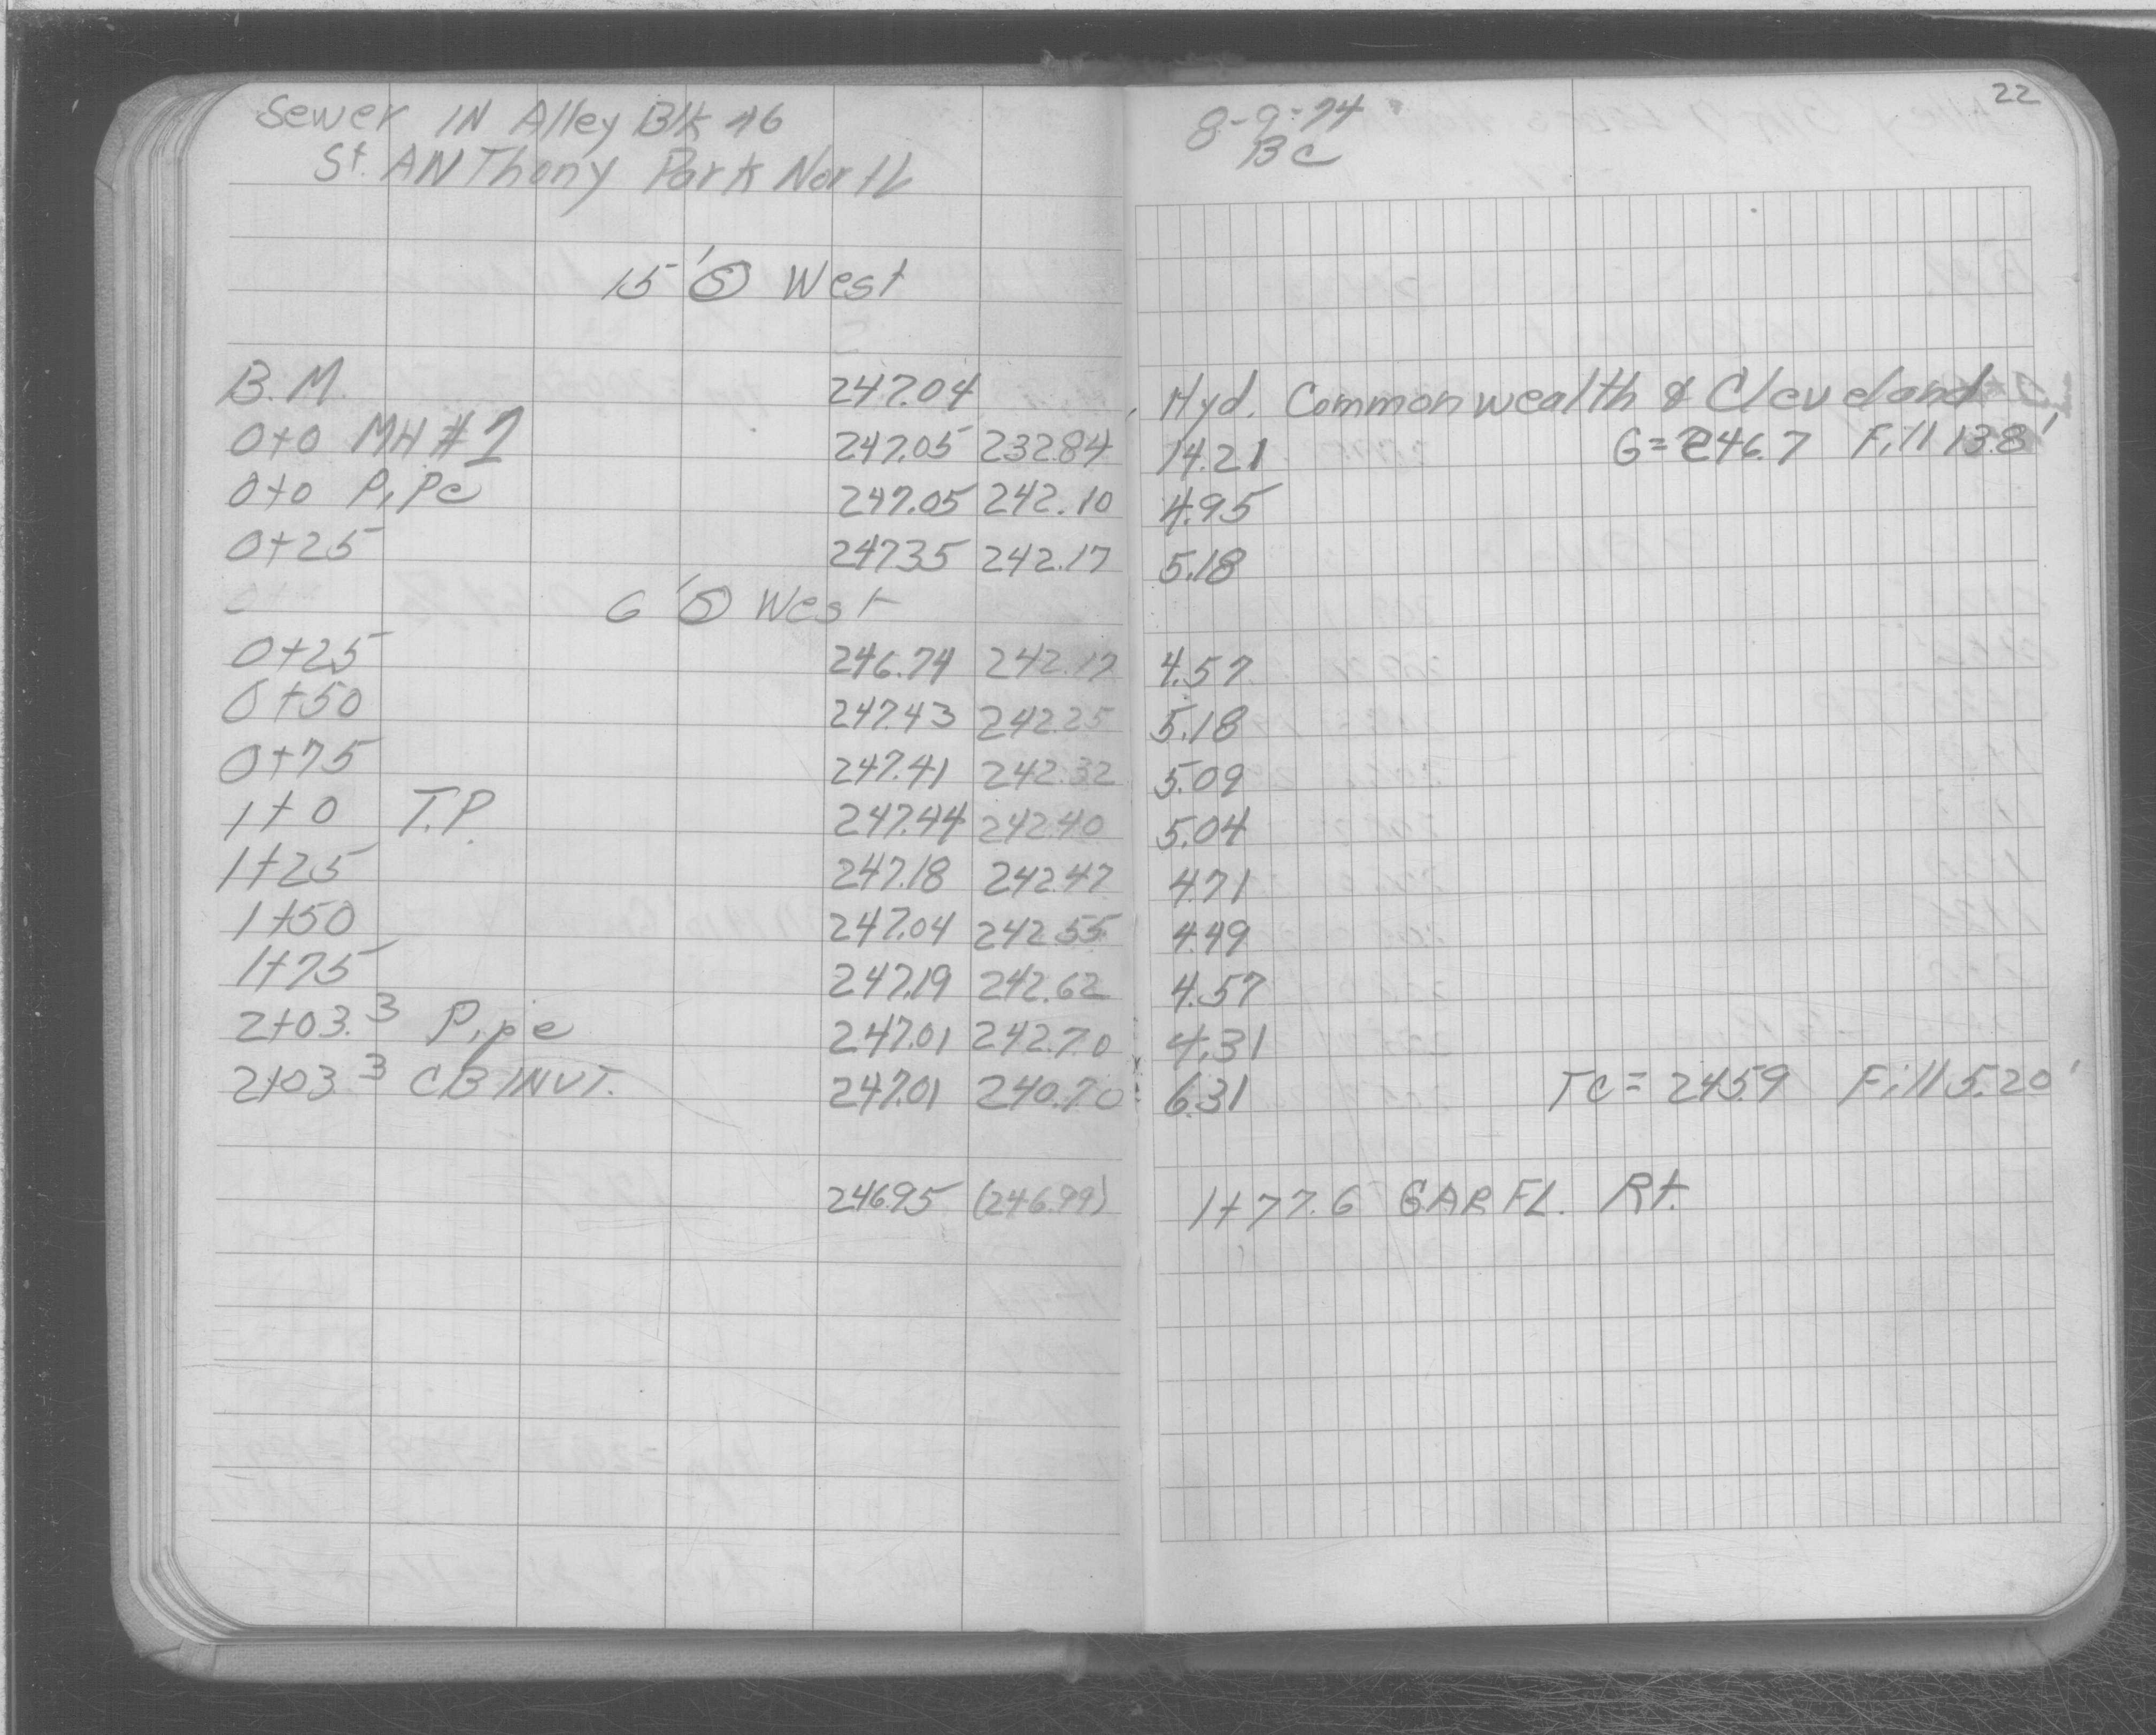 Sewer IN Alley Blk 46
St. ANThony Park North
8-9-74
BC
22
15' Ⓢ West
B.M. 247.04 Hyd. Commonwealth & Cleveland
0+0 MH #1 247.05 232.84 14.21 G=246.7 Fill 13.8'
0+0 PiPe 247.05 242.10 4.95
0+25 247.35 242.17 5.18
6' Ⓢ West
0+25 246.74 242.17 4.57
0+50 247.43 242.25 5.18
0+75 247.41 242.32 5.09
1+0 T.P. 247.44 242.40 5.04
1+25 247.18 242.47 4.71
1+50 247.04 242.55 4.49
1+75 247.19 242.62 4.57
2+03.3 Pipe 247.01 242.70 4.31
2+03.3 CB INVT. 247.01 240.70 6.31 TC= 245.9 Fill 5.20'
246.95 (246.99) 1+77.6 GAR FL. Rt.